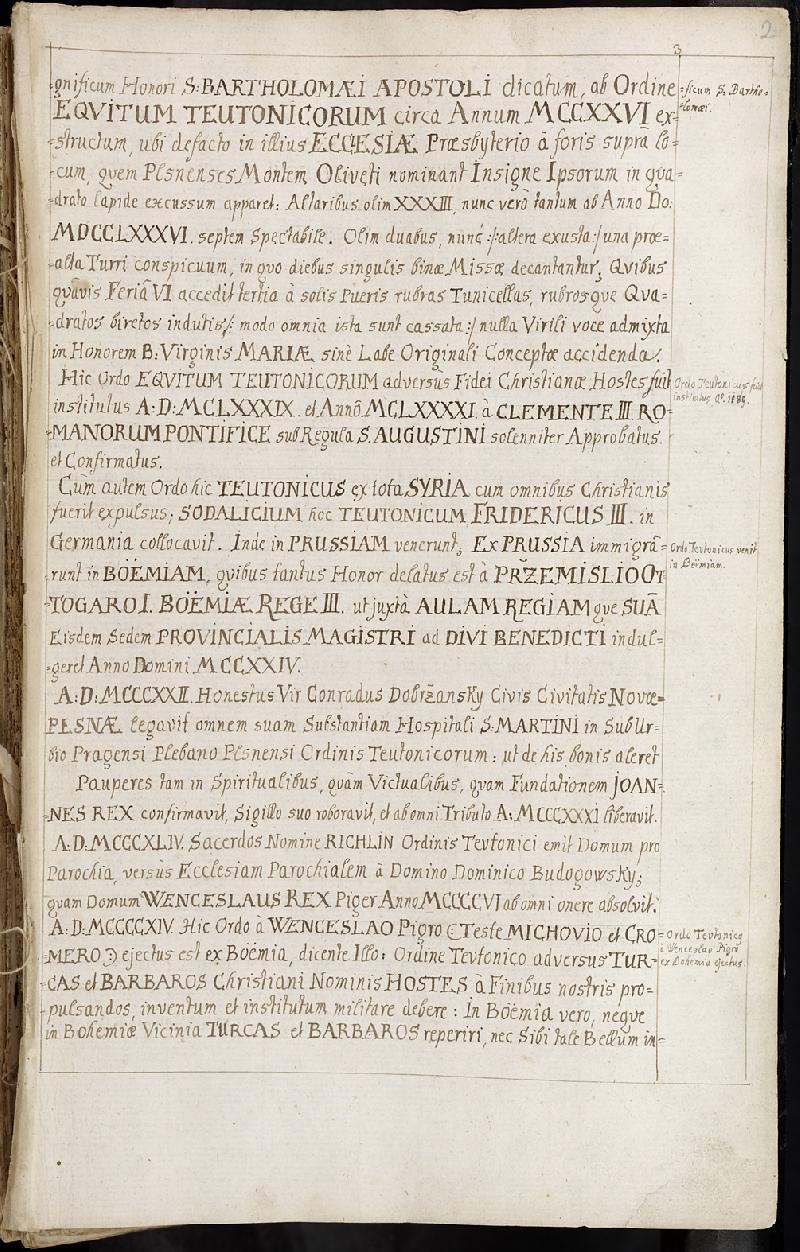 3
2
=gnificum Honori S: BARTHOLOMÆI APOSTOLI dicatum, ab Ordine
EQVITUM TEUTONICORUM circa Annum MCCXXVI ex=
=structum, ubi defacto in illius ECCESIÆ Præsbyterio à foris supra lo=
=cum, quem Plsnenses Montem Oliveti nominant Insigne Ipsorum in qva=
=drato lapide excussum apparet: Altaribus olim XXXIII, nunc verò tantum ab Anno Do:
MDCCLXXXVI. septem Spectabile. Olim duabus, nunc :/altera exusta:/ una præ=
=alta Turri conspicuum, in qvo diebus singulis binæ Missæ decantantur, Qvibus
qvavis Feria VI accedit tertia à solis Pueris rubras Tunicellas, rubrosqve Qva=
=dratos biretos indutis /: modo omnia ista sunt cassata :/ nulla Virili voce admixta
in Honorem B: Virginis MARIÆ sinè Labe Originali Conceptæ accidenda.
Hic Ordo EQVITUM TEUTONICORUM adversus Fidei Christianæ Hostes fuit
institutus A: D: MCLXXXIX. et Anno MCLXXXXI. à CLEMENTE III RO=
=MANORUM PONTIFICE sub Regula S. AUGUSTINI solenniter Approbatus.
et Confirmatus.
Cum autem Ordo hic TEUTONICUS ex tota SYRIA cum omnibus Christianis
fuerit expulsus; SODALICIUM hoc TEUTONICUM FRIDERICUS III. in
Germania collocavit. Inde in PRUSSIAM venerunt, Ex PRUSSIA immigrâ=
=runt in BOËMIAM, qvibus tantus Honor delatus est à PRZEMISLIO OT
=TOGARO I. BOËMIÆ REGE III. ut juxtà AULAM REGIAM qve SUÃ
Eisdem Sedem PROVINCIALIS MAGISTRI ad DIVI BENEDICTI indul=
=geret Anno Domini MCCXXIV.
A: D: MCCCXXII. Honestus Vir Conradus Dobržansky Civis Civitatis Novæ=
PLSNÆ legavit omnem suam Substantiam Hospitali S: MARTINI in Subur=
bio Pragensi Plebano Plsnensi Ordinis Teutonicorum: ut de his bonis aleret
Pauperes tam in Spiritualibus, quàm Victualibus, qvam Fundationem JOAN=
=NES REX confirmavit, Sigillo suo roboravit, et ab omni Tributo A: MCCCXXXI liberavit.
A: D: MCCCXLIV. Sacerdos Nomine RICHLIN Ordinis Teutonici emit Domum pro
Parochia, versùs Ecclesiam Parochialem à Domino Dominico Budogowsky;
qvam Domum WENCESLAUS REX Piger Anno MCCCCVI ab omni onere absolvit.
A: D: MCCCCXIV. Hic Ordo à WENCESLAO Pigro (Teste MICHOVIO et CRO=
=MERO) ejectus est ex Boëmia, dicente Illo: Ordine Tevtonico adversus TUR=
CAS et BARBAROS Christiani Nominis HOSTES à Finibus nostris pro=
pulsandos, inventum et institutum militare debere: In Boëmia vero, neqve
in Bohemiæ Vicinia TURCAS et BARBAROS reperiri, nec Sibi tale Bellum in=
=ficum S. Bartho=
=lomæi.
Ordo Teutonicus fuit
institutus A. 1189.
Ordo Tevtonicus venit
in Boëmiam.
Ordo Tevtonico
à Wenceslao Pigro
ex Bohemia ejectus.